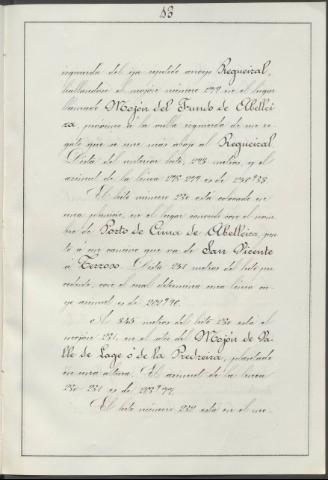 53
izquierda del ya repetido arroyo Regueiral,
hallandose el mojón número 279 en el lugar
llamado Mojón del Fundo de Abellei
ra, próximo á la orilla izquierda de un re-
gato que se une más abajo al Regueiral.
Dista del anterior hito, 298 metros, y el
azimut de la línea 278-279 es de
El hito número 280 está colocado en
una planicie, en el lugar conocido con el nom-
bre de Porto de Cima de Abelleira, jun
to á un camino que va de San Vicente
á Terroso. Dista 251 metros del hito pre-
cedente, con el cual determina una línea cu-
yo azimut es de
A 845 metros del hito 280 está el
mojón 281, en el alto del Mojón de Va-
lle de Lage ó de la Pedreira, plantado
en una altura. El azimut de la línea
280-281 es de
El hito número 282 está en el mo-